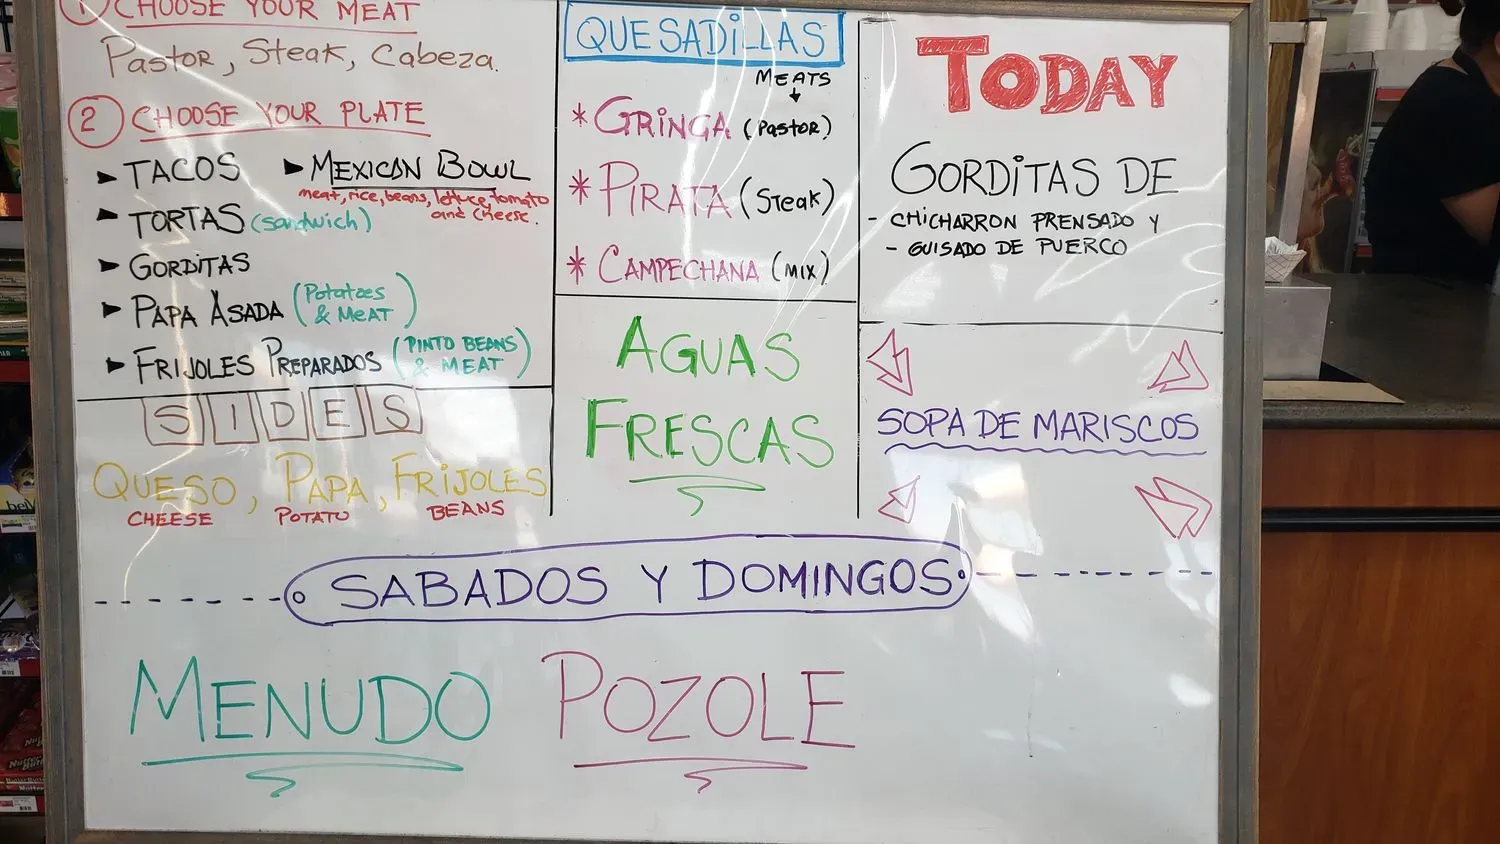 1 CHOOSE YOUR MEAT
Pastor, Steak, Cabeza.
2 CHOOSE YOUR PLATE
TACOS
TORTAS (sandwich)
GORDITAS
PAPA ASADA (Potatoes & MEAT)
FRIJOLES PREPARADOS (PINTO BEANS & MEAT)
MEXICAN BOWL
meat, rice, beans, lettuce, tomato
and cheese.
SIDES
QUESO, PAPA, FRIJOLES
CHEESE POTATO BEANS
QUESADILLAS
MEATS
* GRINGA (Pastor)
* PIRATA (Steak)
* CAMPECHANA (MIX)
AGUAS
FRESCAS
TODAY
GORDITAS DE
- CHICHARRON PRENSADO Y
- GUISADO DE PUERCO
SOPA DE MARISCOS
SABADOS Y DOMINGOS
MENUDO POZOLE